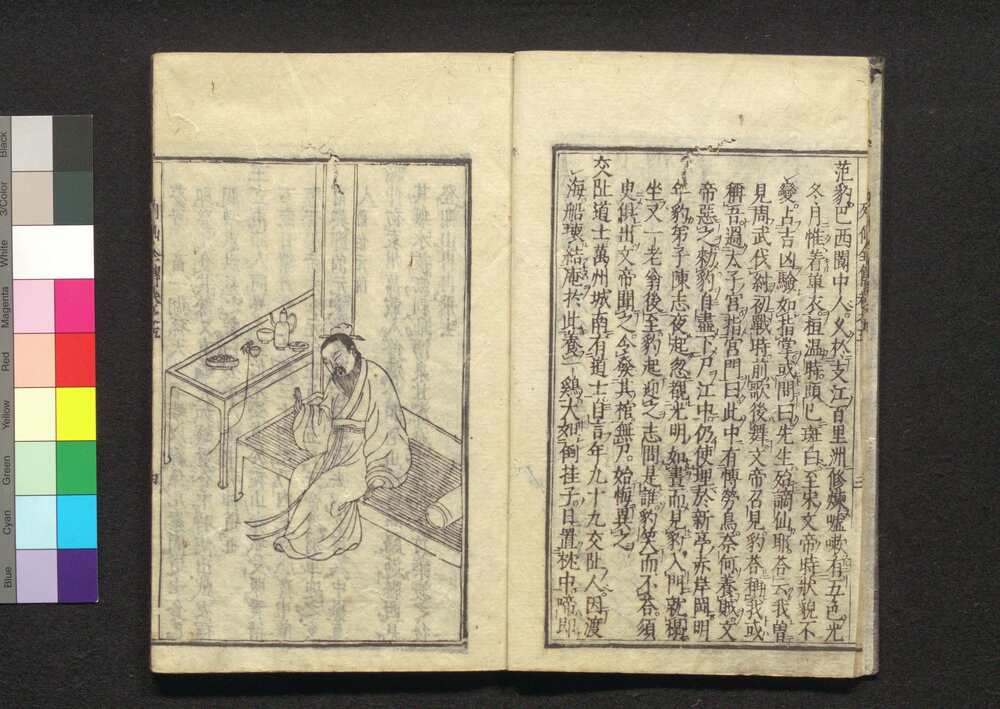 范豹巴西閬中人久於支江百里洲修煉嘘嗽有五色光
冬月惟着單衣桓温時頭已斑白至宋文帝時狀貌不
變占吉凶驗如指掌或問曰先生殆謫仙耶答云我曽
見周武伐紂初戰時前歌後舞文帝召見豹答稱我或
稱吾過太子宮指宮門曰此中有博勞鳥奈何養賊文
帝惡之勅豹自盡下刀江中仍使埋於新亭赤岸岡明
年豹弟子陳志夜起忽覩光明如晝而見豹入門就榻
坐又一老翁後至豹起迎之志問是誰豹笑而不答須
臾俱出文帝聞之令發其棺無尸始悔異之
交阯道士萬州城南有道士自言年九十九交阯人因渡
海船壞結庵於此養一鷄大如倒挂子日置枕中啼即
四
Black
3/Color
White
Magenta
Red
Yellow
Green
Cyan
Blue